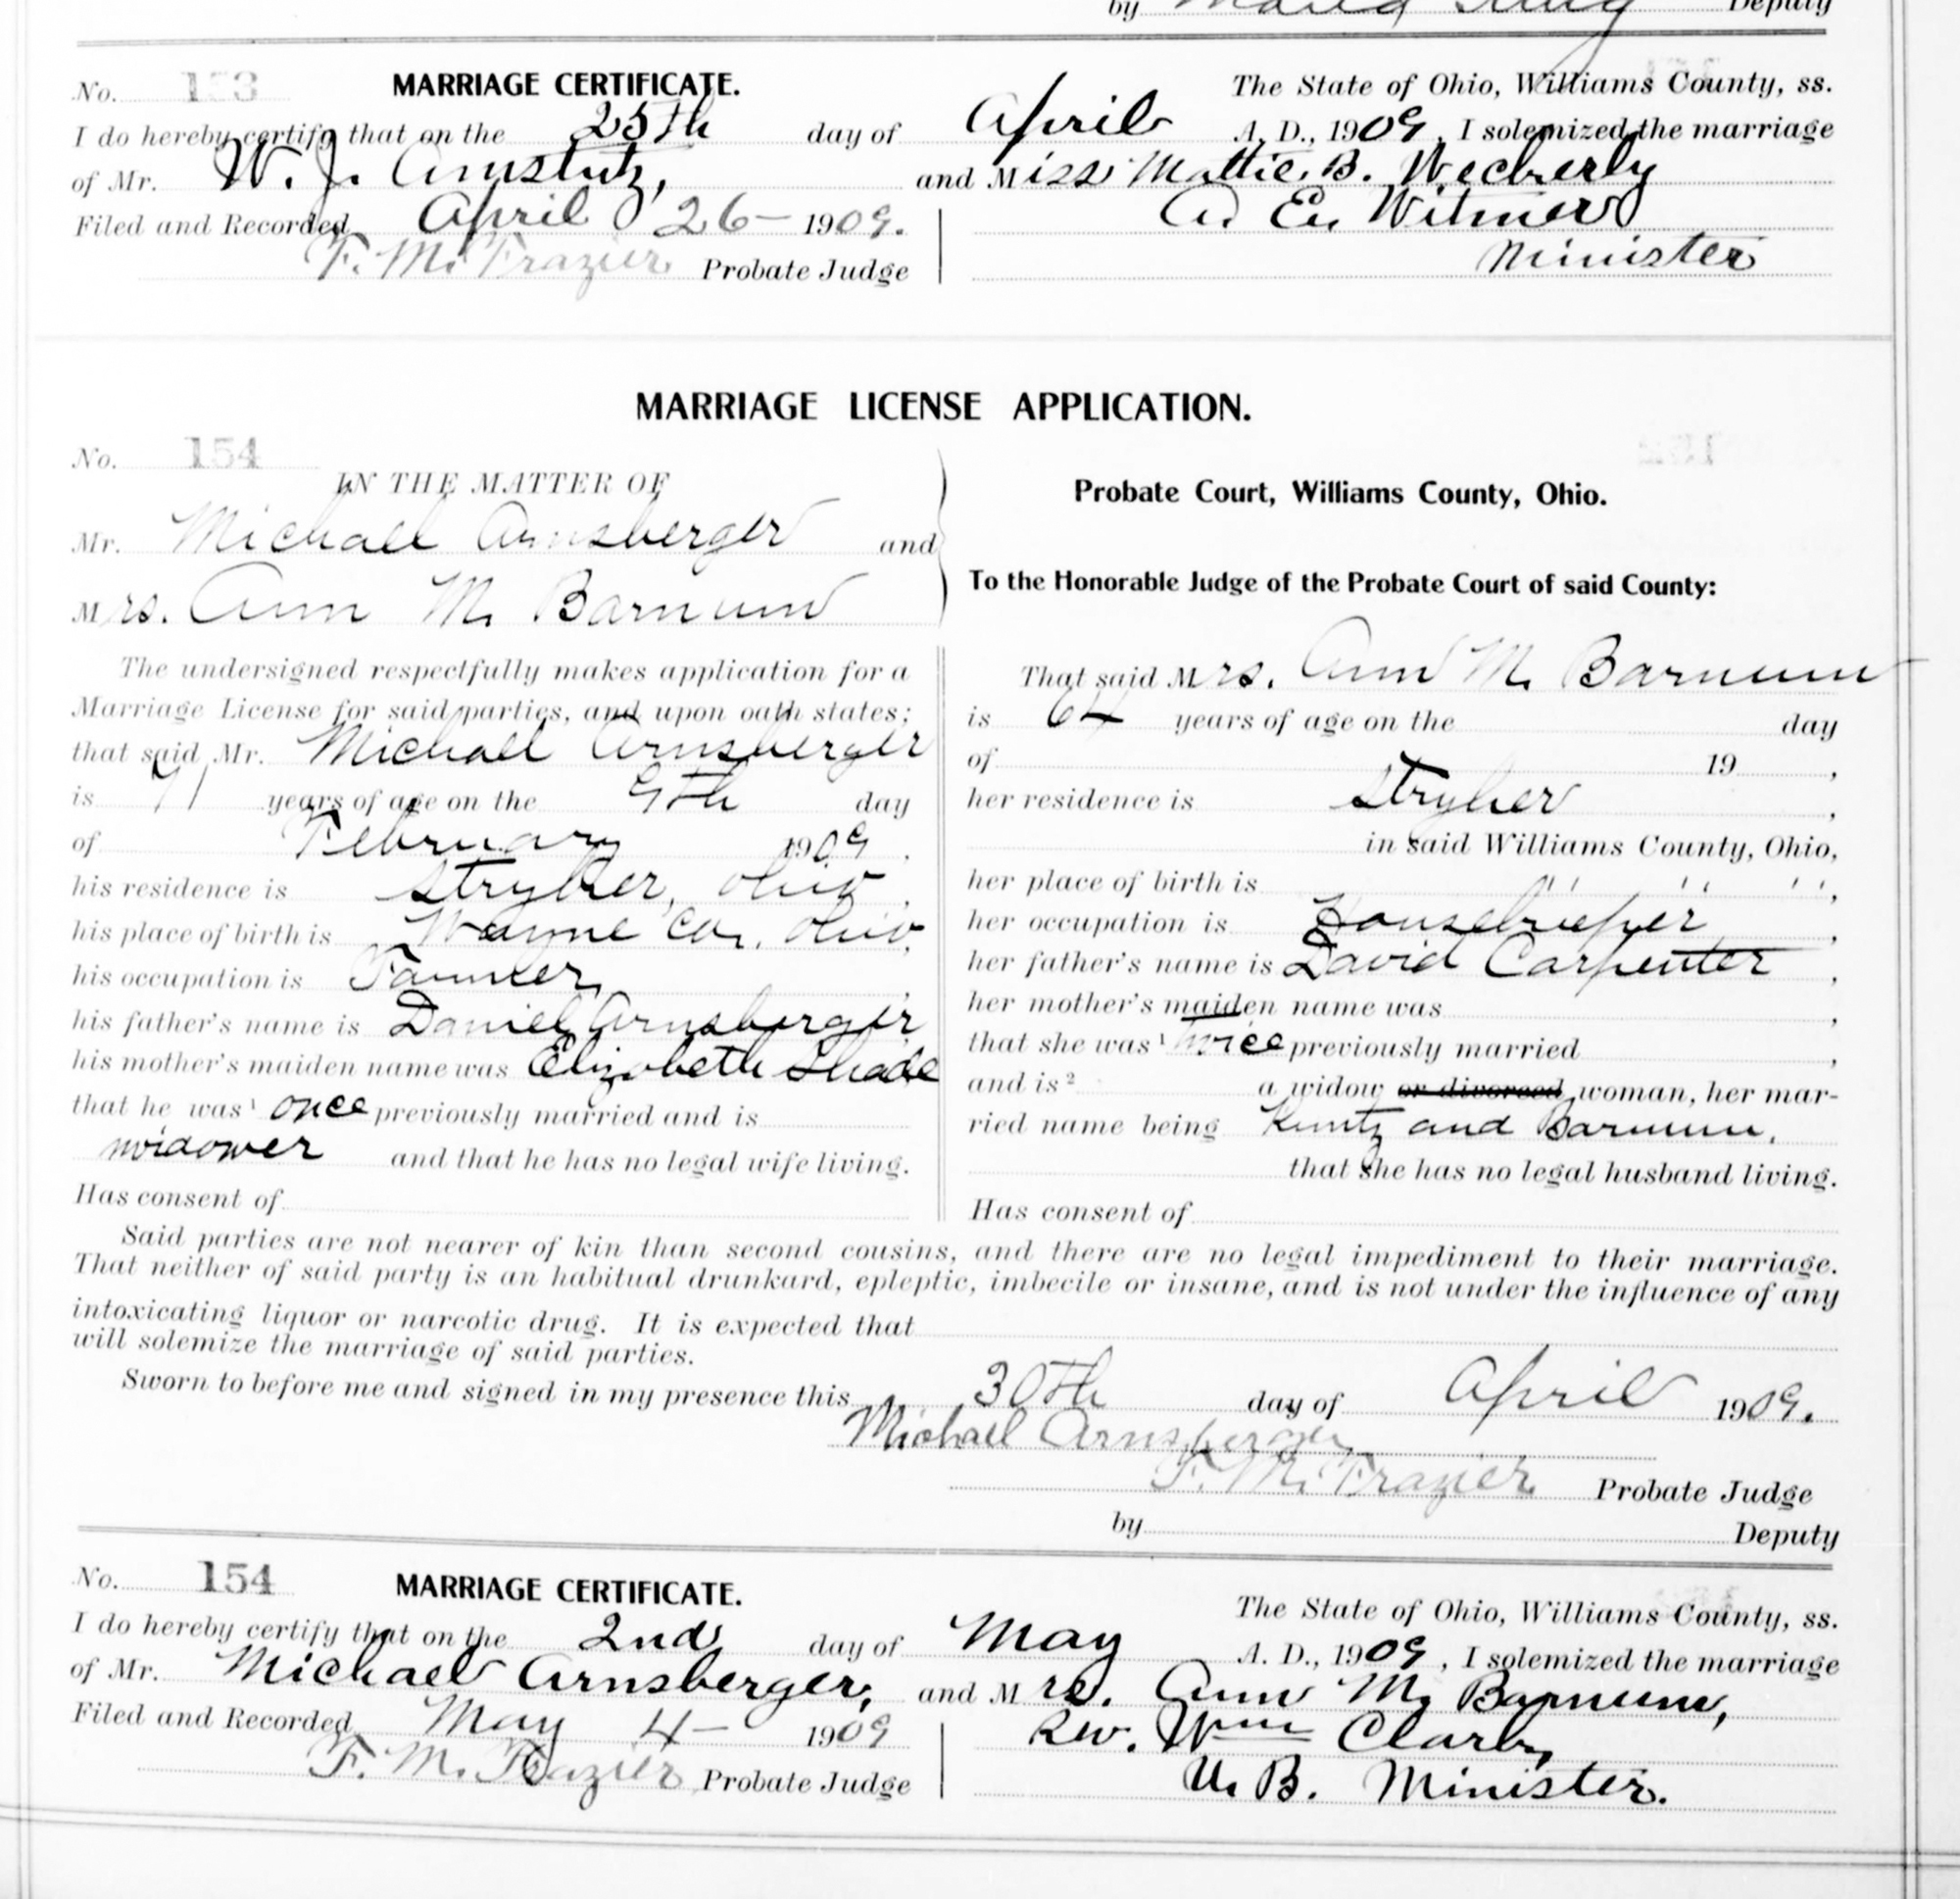 by Deputy
No. 153 MARRIAGE CERTIFICATE. The State of Ohio, Williams County, ss.
I do hereby certify that on the 25th day of April A. D., 1909, I solemized the marriage
of Mr. W. J. Amstutz, and Miss Mattie B. Weckerly
Filed and Recorded April 26 - 1909. A. E. Witmer
F. M. Frazier Probate Judge Minister
MARRIAGE LICENSE APPLICATION.
No. 154
IN THE MATTER OF
Mr. Michael Arnsberger and
Mrs. Ann M. Barnum
Probate Court, Williams County, Ohio.
To the Honorable Judge of the Probate Court of said County:
The undersigned respectfully makes application for a
Marriage License for said parties, and upon oath states;
that said Mr. Michael Arnsberger
is 71 years of age on the 9th day
of February 1909.
his residence is Stryker, Ohio,
his place of birth is Wayne Co., Ohio,
his occupation is Farmer,
his father's name is Daniel Arnsberger,
his mother's maiden name was Elizabeth Shade
that he was¹ once previously married and is
widower and that he has no legal wife living.
Has consent of
That said Mrs. Ann M. Barnum
is 64 years of age on the day
of 19 ,
her residence is Stryker,
in said Williams County, Ohio,
her place of birth is " " ",
her occupation is Housekeeper,
her father's name is David Carpenter,
her mother's maiden name was ,
that she was¹ twice previously married ,
and is² a widow or divorced woman, her mar-
ried name being Kuntz and Barnum.
that she has no legal husband living.
Has consent of
Said parties are not nearer of kin than second cousins, and there are no legal impediment to their marriage.
That neither of said party is an habitual drunkard, epleptic, imbecile or insane, and is not under the influence of any
intoxicating liquor or narcotic drug. It is expected that
will solemize the marriage of said parties.
Sworn to before me and signed in my presence this 30th day of April 1909.
Michael Arnsberger
F. M. Frazier Probate Judge
by Deputy
No. 154 MARRIAGE CERTIFICATE. The State of Ohio, Williams County, ss.
I do hereby certify that on the 2nd day of May A. D., 1909, I solemized the marriage
of Mr. Michael Arnsberger, and Mrs. Ann M. Barnum,
Filed and Recorded May 4 - 1909 Rev. Wm Clark,
F. M. Frazier Probate Judge U. B. Minister.